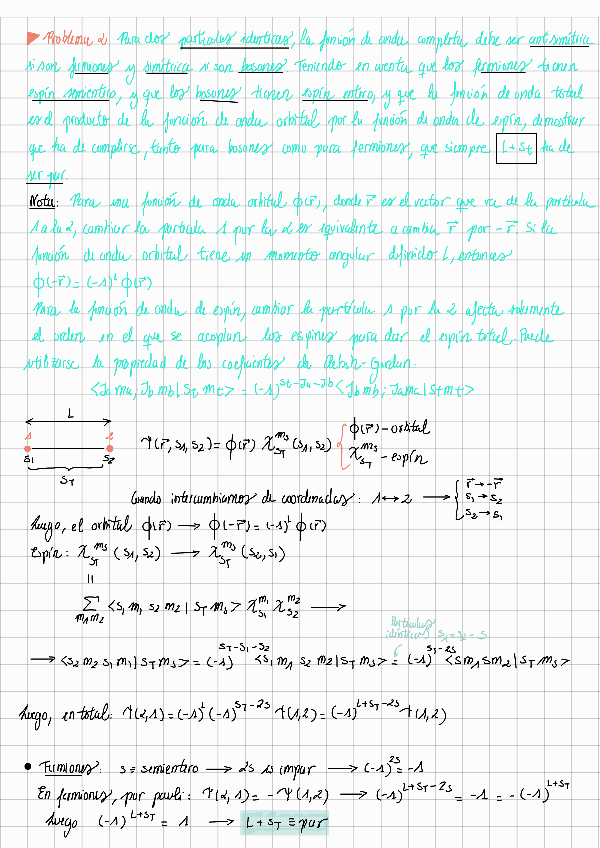 ▶ Problema 2 Para dos partículas idénticas, la función de onda completa debe ser antisimétrica
si son fermiones y simétrica si son bosones. Teniendo en cuenta que los fermiones tienen
espín semientero, y que los bosones tienen espín entero, y que la función de onda total
es el producto de la función de onda orbital por la función de onda de espín, demostrar
que ha de cumplirse, tanto para bosones como para fermiones, que siempre L+St ha de
ser par.
Nota: Para una función de onda orbital ϕ(r⃗), donde r⃗ es el vector que va de la partícula
1 a la 2, cambiar la partícula 1 por la 2 es equivalente a cambiar r⃗ por -r⃗. Si la
función de onda orbital tiene un momento angular definido L, entonces
ϕ(-r⃗) = (-1)^L ϕ(r⃗)
Para la función de onda de espín, cambiar la partícula 1 por la 2 afecta solamente
el orden en el que se acoplan los espines para dar el espín total. Puede
utilizarse la propiedad de los coeficientes de Clebsh-Gordan:
<Ja ma; Jb mb | St mt> = (-1)^{St-Ja-Jb} <Jb mb; Ja ma | St mt>
L
1 2
S1 S2
ST
Ψ(r⃗, s1, s2) = ϕ(r⃗) χ_{ST}^{ms}(s1, s2) { ϕ(r⃗) - orbital
χ_{ST}^{ms} - espín
Cuando intercambiamos de coordenadas: 1 ↔ 2 → { r⃗ → -r⃗
s1 → s2
s2 → s1
Luego, el orbital ϕ(r⃗) → ϕ(-r⃗) = (-1)^L ϕ(r⃗)
Espín: χ_{ST}^{ms}(s1, s2) → χ_{ST}^{ms}(s2, s1)
=
∑_{m1 m2} <s1 m1 s2 m2 | ST ms> χ_{s1}^{m1} χ_{s2}^{m2} →
Partículas
idénticas s1 = s2 = s
→ <s2 m2 s1 m1 | ST ms> = (-1)^{ST-S1-S2} <s1 m1 s2 m2 | ST ms> = (-1)^{ST-2S} <s m1 s m2 | ST ms>
Luego, en total: Ψ(2,1) = (-1)^L (-1)^{ST-2S} Ψ(1,2) = (-1)^{L+ST-2S} Ψ(1,2)
• Fermiones: s ≡ semientero → 2s is impar → (-1)^{2s} = -1
En fermiones, por pauli: Ψ(2,1) = -Ψ(1,2) → (-1)^{L+ST-2S} = -1 = -(-1)^{L+ST}
luego (-1)^{L+ST} = 1 → L+ST ≡ par